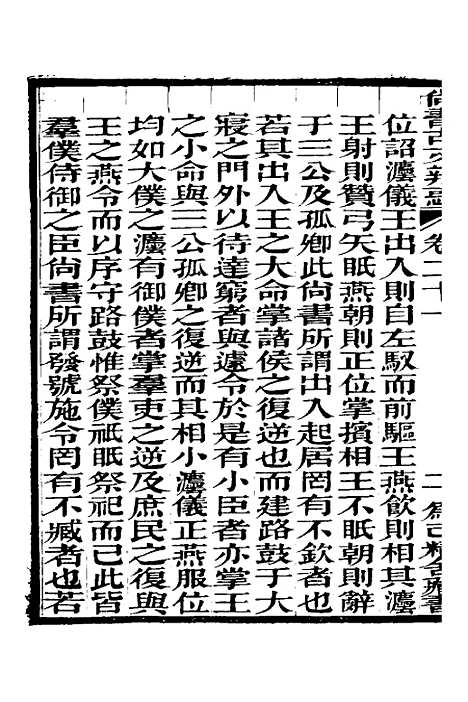 尚書古文辨惑 卷二十一 二 爲己精舍藏書
位詔灋儀王出入則自左馭而前驅王燕飲則相其灋
王射則贊弓矢眂燕朝則正位掌擯相王不眂朝則辭
于三公及孤卿此尚書所謂出入起居罔有不欽者也
若其出入王之大命掌諸侯之復逆也而建路鼓于大
寢之門外以待達窮者與遽令於是有小臣者亦掌王
之小命與三公孤卿之復逆而其相小灋儀正燕服位
均如大僕之灋有御僕者掌羣吏之逆及庶民之復與
王之燕令而以序守路鼓惟祭僕祇眂祭祀而已此皆
羣僕侍御之臣尚書所謂發號施令罔有不臧者也若